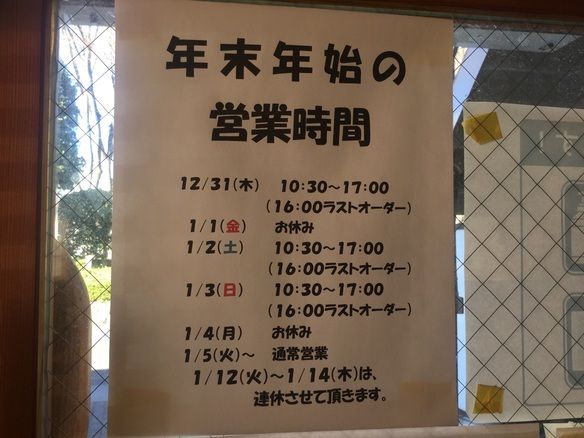 年末年始の
営業時間
12/31(木) 10:30～17:00
(16:00ラストオーダー)
1/1(金) お休み
1/2(土) 10:30～17:00
(16:00ラストオーダー)
1/3(日) 10:30～17:00
(16:00ラストオーダー)
1/4(月) お休み
1/5(火)～ 通常営業
1/12(火)～1/14(木)は、
連休させて頂きます。